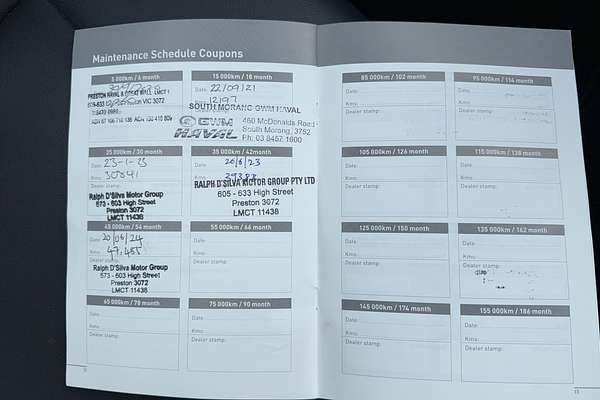 Maintenance Schedule Coupons
5 000km / 6 month
PRESTON HAVAL & GREAT WALL LMCT 1
Preston VIC 3072
15 000km / 18 month
Date: 22/09/21
12197
SOUTH MORANG GWM HAVAL
GWM
HAVAL
460 McDonalds Road
South Morang, 3752
Ph: 03 8457 1600
25 000km / 30 month
Date: 23-1-23
Kms: 30841
Dealer stamp:
Ralph D'Silva Motor Group
573 - 603 High Street
Preston 3072
LMCT 11438
35 000km / 42month
Date: 20/6/23
Kms: 39388
RALPH D'SILVA MOTOR GROUP PTY LTD
605 - 633 High Street
Preston 3072
LMCT 11438
45 000km / 54 month
Date: 20/06/24
Kms: 47,455
Dealer stamp:
Ralph D'Silva Motor Group
573 - 603 High Street
Preston 3072
LMCT 11438
55 000km / 66 month
Date:
Kms:
Dealer stamp:
65 000km / 78 month
Date:
Kms:
Dealer stamp:
75 000km / 90 month
Date:
Kms:
Dealer stamp:
85 000km / 102 month
Date:
Kms:
Dealer stamp:
95 000km / 114 month
Date:
Kms:
Dealer stamp:
105 000km / 126 month
Date:
Kms:
Dealer stamp:
115 000km / 138 month
Date:
Kms:
Dealer stamp:
125 000km / 150 month
Date:
Kms:
Dealer stamp:
135 000km / 162 month
Date:
Kms:
145 000km / 174 month
Date:
Kms:
Dealer stamp:
155 000km / 186 month
Date:
Kms:
Dealer stamp: